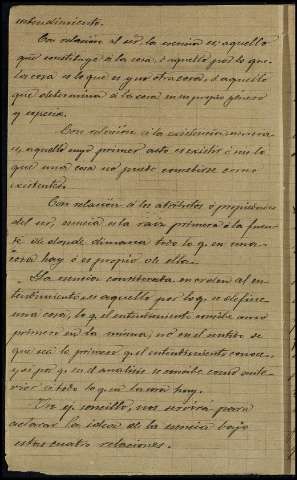 entendimiento.
Con relación al ser, la esencia es; aquello
que constituye á la cosa, ó aquello por lo que
la cosa es lo que es y no otra cosa, ó aquello
que determina á la cosa en su propio género
y especie.
Con relación á la existencia, esencia
es, aquello cuyo primer acto es existir ó sin lo
que una cosa no puede concebirse como
existente.
Con relación á los atributos ó propiedades
del ser, esencia es la raiz primera ó la fuen-
te de donde dimana todo lo q. en una
cosa hay ó es propio de ella.
La esencia considerada en orden al en-
tendimiento, es aquello por lo q. se define
una cosa, lo q. el entendimiento concibe como
primero en la misma, no en el sentido de
que sea lo primero q. el entendimiento conoce,
es por q. en el analisis se concibe como ante-
rior á todo lo q. en la cosa hay.
Un ej. sencillo, nos servirá para
aclarar la idea de la esencia bajo
estas cuatro relaciones.